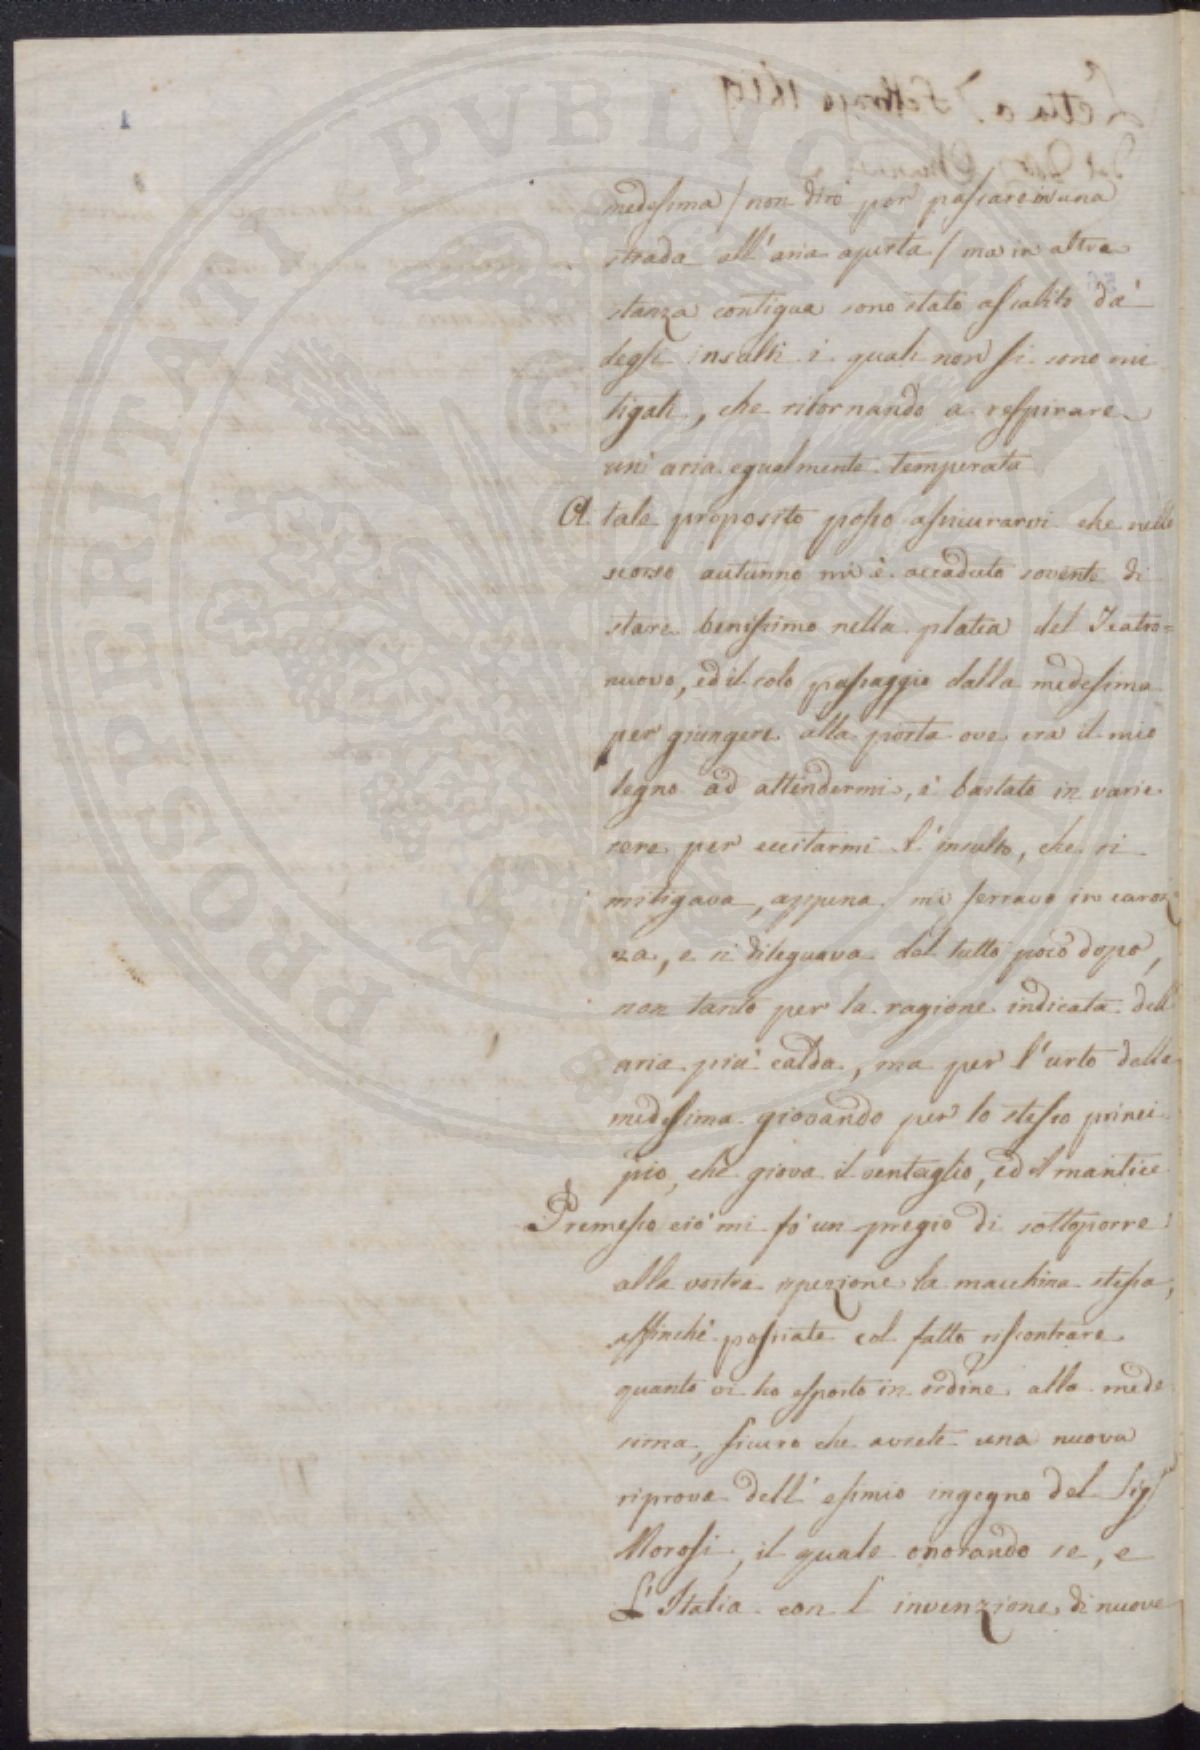 medesima / non dirò per passare in una
strada all'aria aperta / ma in altra
stanza contigua sono stato assalito da'
degli insulti i quali non si sono mi
tigati, che ritornando a respirare
un' aria egualmente temperata
A tale proposito posso assicurarvi che nello
scorso autunno mi è accaduto sovente di
stare benissimo nella platea del Teatro=
nuovo, ed il solo passaggio dalla medesima
per giungere alla porta ove era il mio
legno ad attendermi, è bastato in varie
sere per eccitarmi l'insulto, che si
mitigava, appena mi serravo in caroz
za, e si dileguava del tutto poco dopo,
non tanto per la ragione indicata dell'
aria più calda, ma per l'urto della
medesima giovando per lo stesso princi
pio, che giova il ventaglio, ed il mantice
Premesso ciò mi fò un pregio di sottoporre
alla vostra ispezione la macchina stessa,
affinchè possiate col fatto riscontrare
quanto vi ho esposto in ordine alla mede
sima, sicuro che avrete una nuova
riprova dell' esimio ingegno del Sig.r
Morosi, il quale onorando se, e
L'Italia con l invenzione di nuove
PROSPERITATI PVBLICAE
1